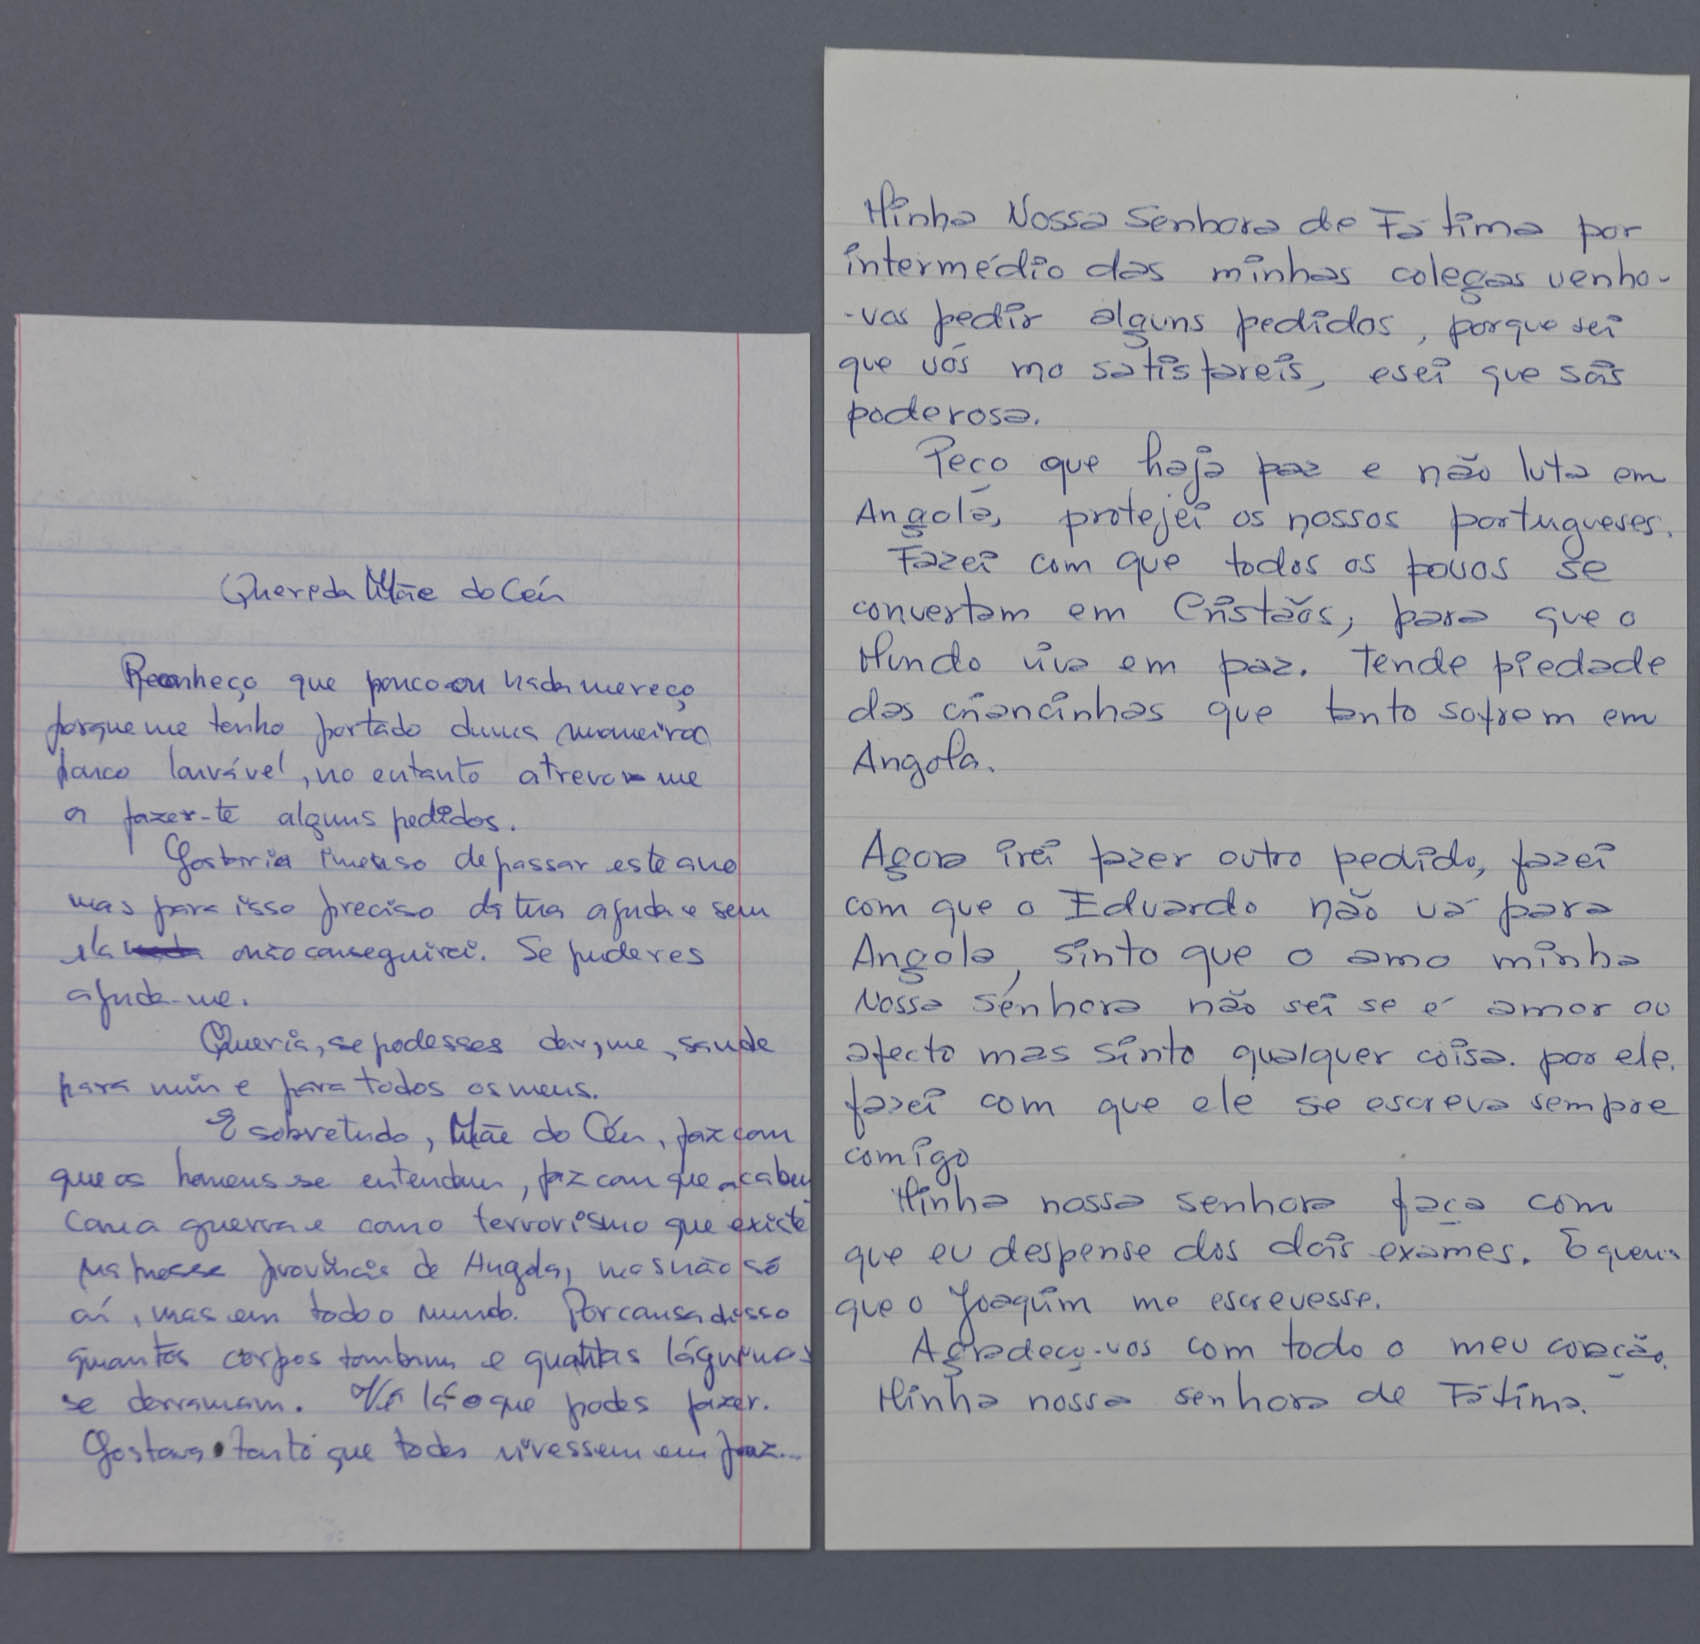 Querida Mãe do Céu
Reconheço que pouco ou nada mereço
porque me tenho portado duma maneira
pouco louvável, no entanto atrevo-me
a fazer-te alguns pedidos.
Gostaria imenso de passar este ano
mas para isso preciso da tua ajuda e sem
ela não conseguirei. Se puderes
ajuda-me.
Queria, se podesses dar-me, saude
para mim e para todos os meus.
E sobretudo, Mãe do Céu, faz com
que os homens se entendam, faz com que acabem
com a guerra e com o terrorismo que existe
na nossa província de Angola, mas não só
aí, mas em todo o mundo. Por causa disso
quantos corpos tombam e quantas lágrimas
se derramam. Vê lá o que podes fazer.
Gostava tanto que todos vivessem em paz...
Minha Nossa Senhora de Fátima por
intermédio das minhas colegas venho-
-vos pedir alguns pedidos, porque sei
que vós mo satisfareis, e sei que sóis
poderosa.
Peço que haja paz e não luta em
Angola, protejei os nossos portugueses.
Fazei com que todos os povos se
convertam em Cristãos, para que o
Mundo viva em paz. Tende piedade
das criancinhas que tanto sofrem em
Angola.
Agora irei fazer outro pedido, fazei
com que o Eduardo não vá para
Angola, sinto que o amo minha
Nossa Senhora não sei se é amor ou
afecto mas sinto qualquer coisa. por ele.
fazei com que ele se escreva sempre
comigo
Minha nossa senhora faça com
que eu despense dos dois exames. E queria
que o Joaquim me escrevesse.
Agradeço-vos com todo o meu coração.
Minha nossa senhora de Fátima.